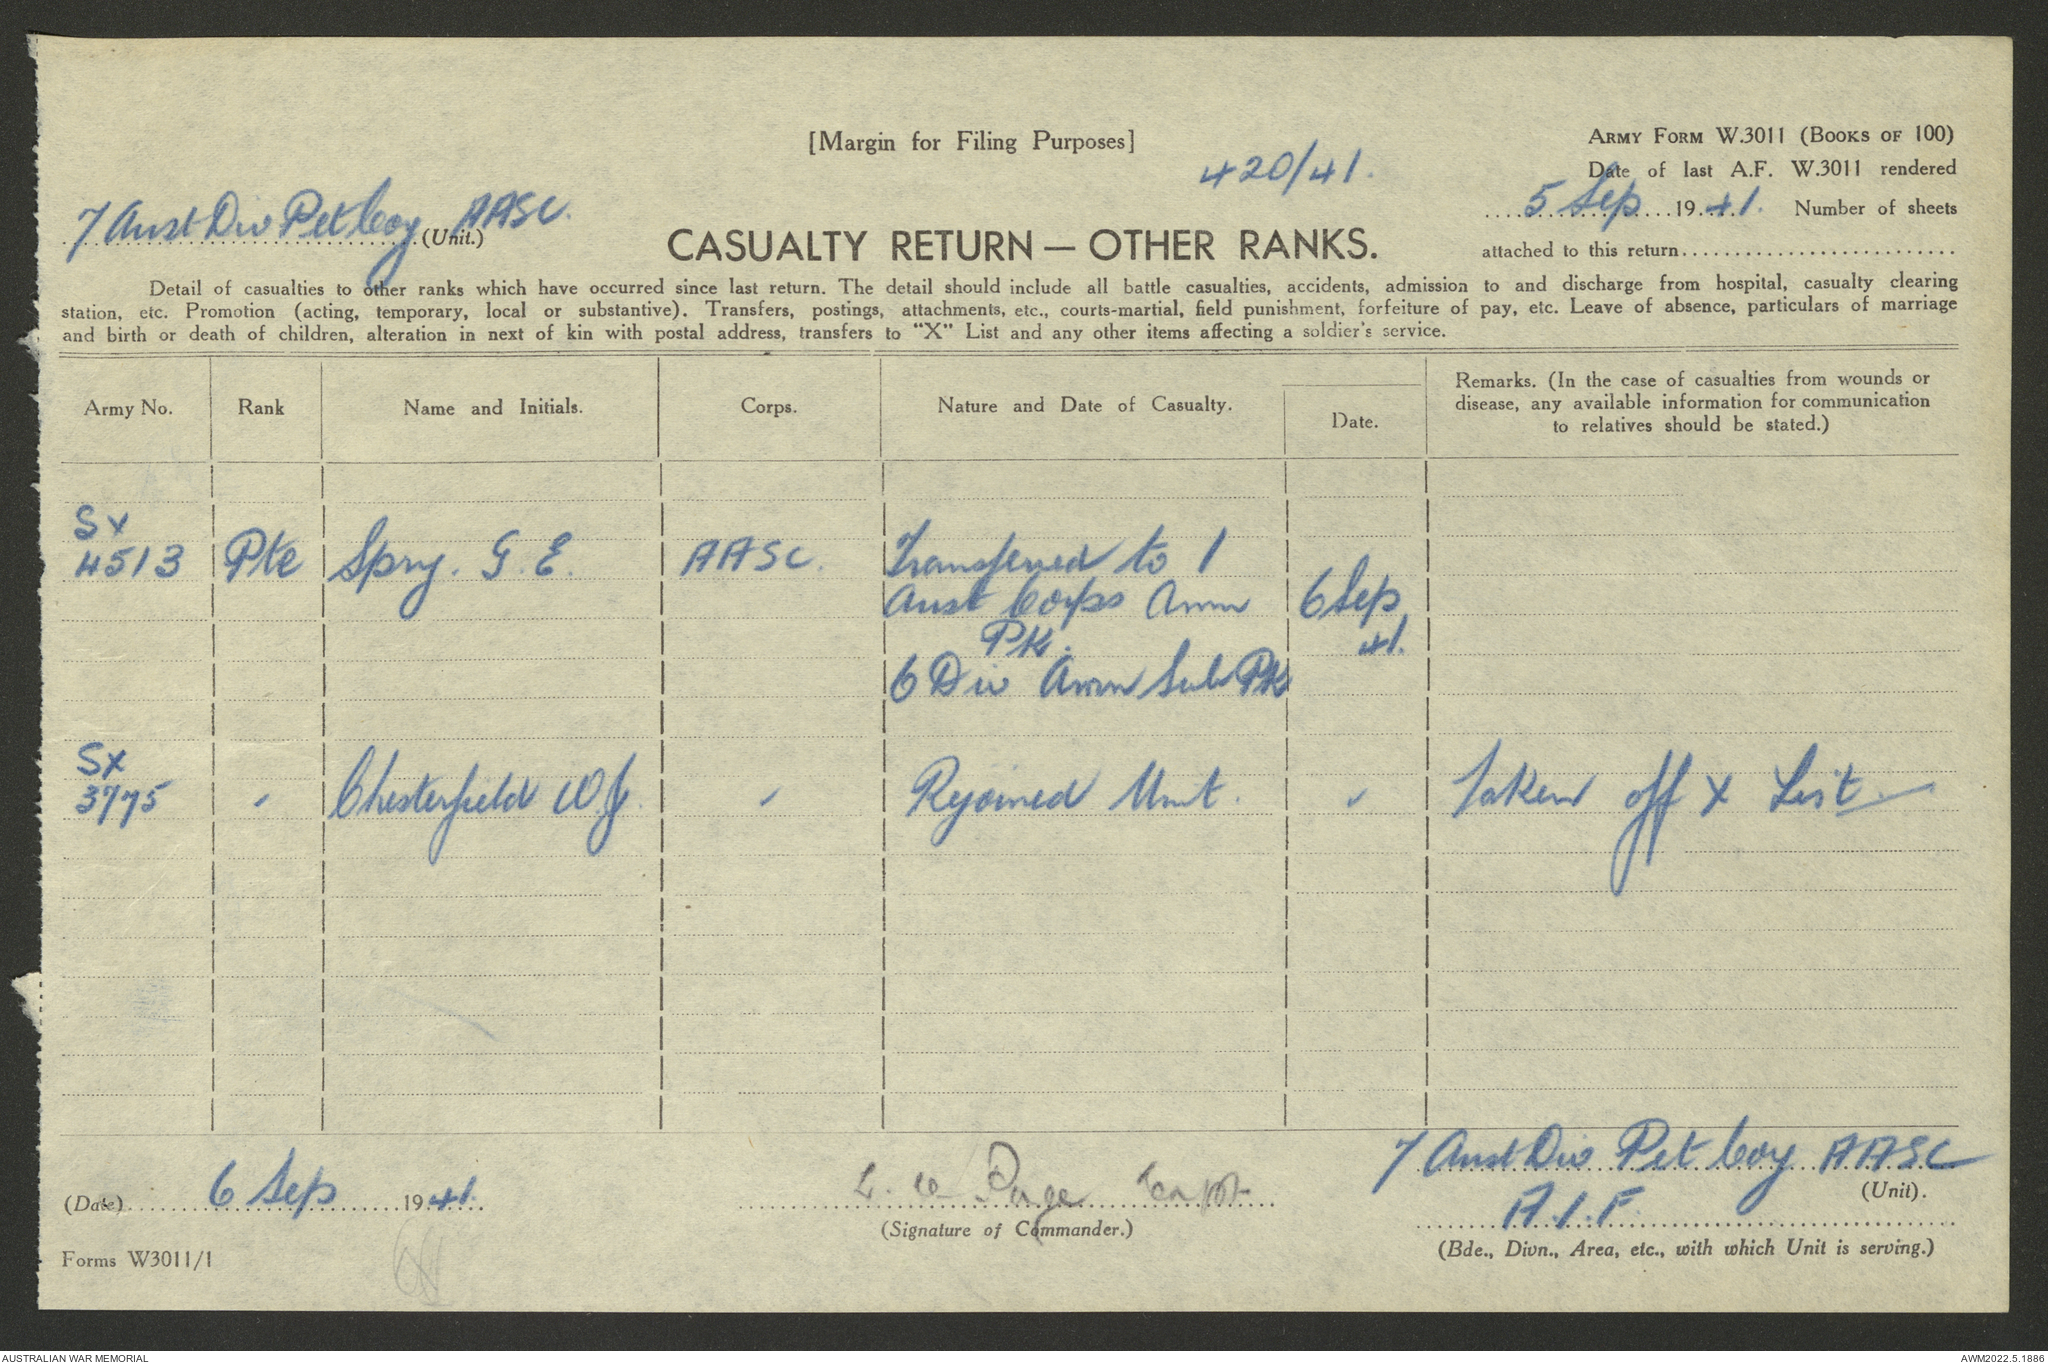 [Margin for Filing Purposes]
ARMY FORM W.3011 (BOOKS OF 100)
420/41.
Date of last A.F. W.3011 rendered
5 Sep 1941. Number of sheets
attached to this return
7 Aust Div Pet Coy AASC.
(Unit.)
CASUALTY RETURN — OTHER RANKS.
Detail of casualties to other ranks which have occurred since last return. The detail should include all battle casualties, accidents, admission to and discharge from hospital, casualty clearing
station, etc. Promotion (acting, temporary, local or substantive). Transfers, postings, attachments, etc., courts-martial, field punishment, forfeiture of pay, etc. Leave of absence, particulars of marriage
and birth or death of children, alteration in next of kin with postal address, transfers to "X" List and any other items affecting a soldier's service.
Army No. Rank Name and Initials. Corps. Nature and Date of Casualty. Date. Remarks. (In the case of casualties from wounds or
disease, any available information for communication
to relatives should be stated.)
SX
4513 Pte Spry. G. E. AASC. Transferred to 1
Aust Corps Amm 6 Sep
Pk. 41.
6 Div Amm Sub Pk
SX
3775 " Chesterfield W J. " Rejoined Unit. " Taken off X List
(Date) 6 Sep 1941.
L. W. Page Capt
(Signature of Commander.)
7 Aust Div Pet Coy AASC
(Unit).
A.I.F.
(Bde., Divn., Area, etc., with which Unit is serving.)
Forms W3011/1
AUSTRALIAN WAR MEMORIAL
AWM2022.5.1886